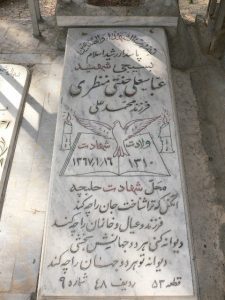 پاسدار رشید اسلام
بسیجی شهید
عباسعلی جنتی منتظری
فرزند محمد علی
ولادت شهادت
۱۳۱۰ ۱۳۶۷/۱/۱۶
محل شهادت حلبچه
آنکس که تو را شناخت جان را چه کند
فرزند و عیال و خانمان را چه کند
دیوانه کنی هر دو جهانش بخشی
دیوانه تو هر دو جهان را چه کند
قطعه ۵۳ ردیف ۴۸ شماره ۹